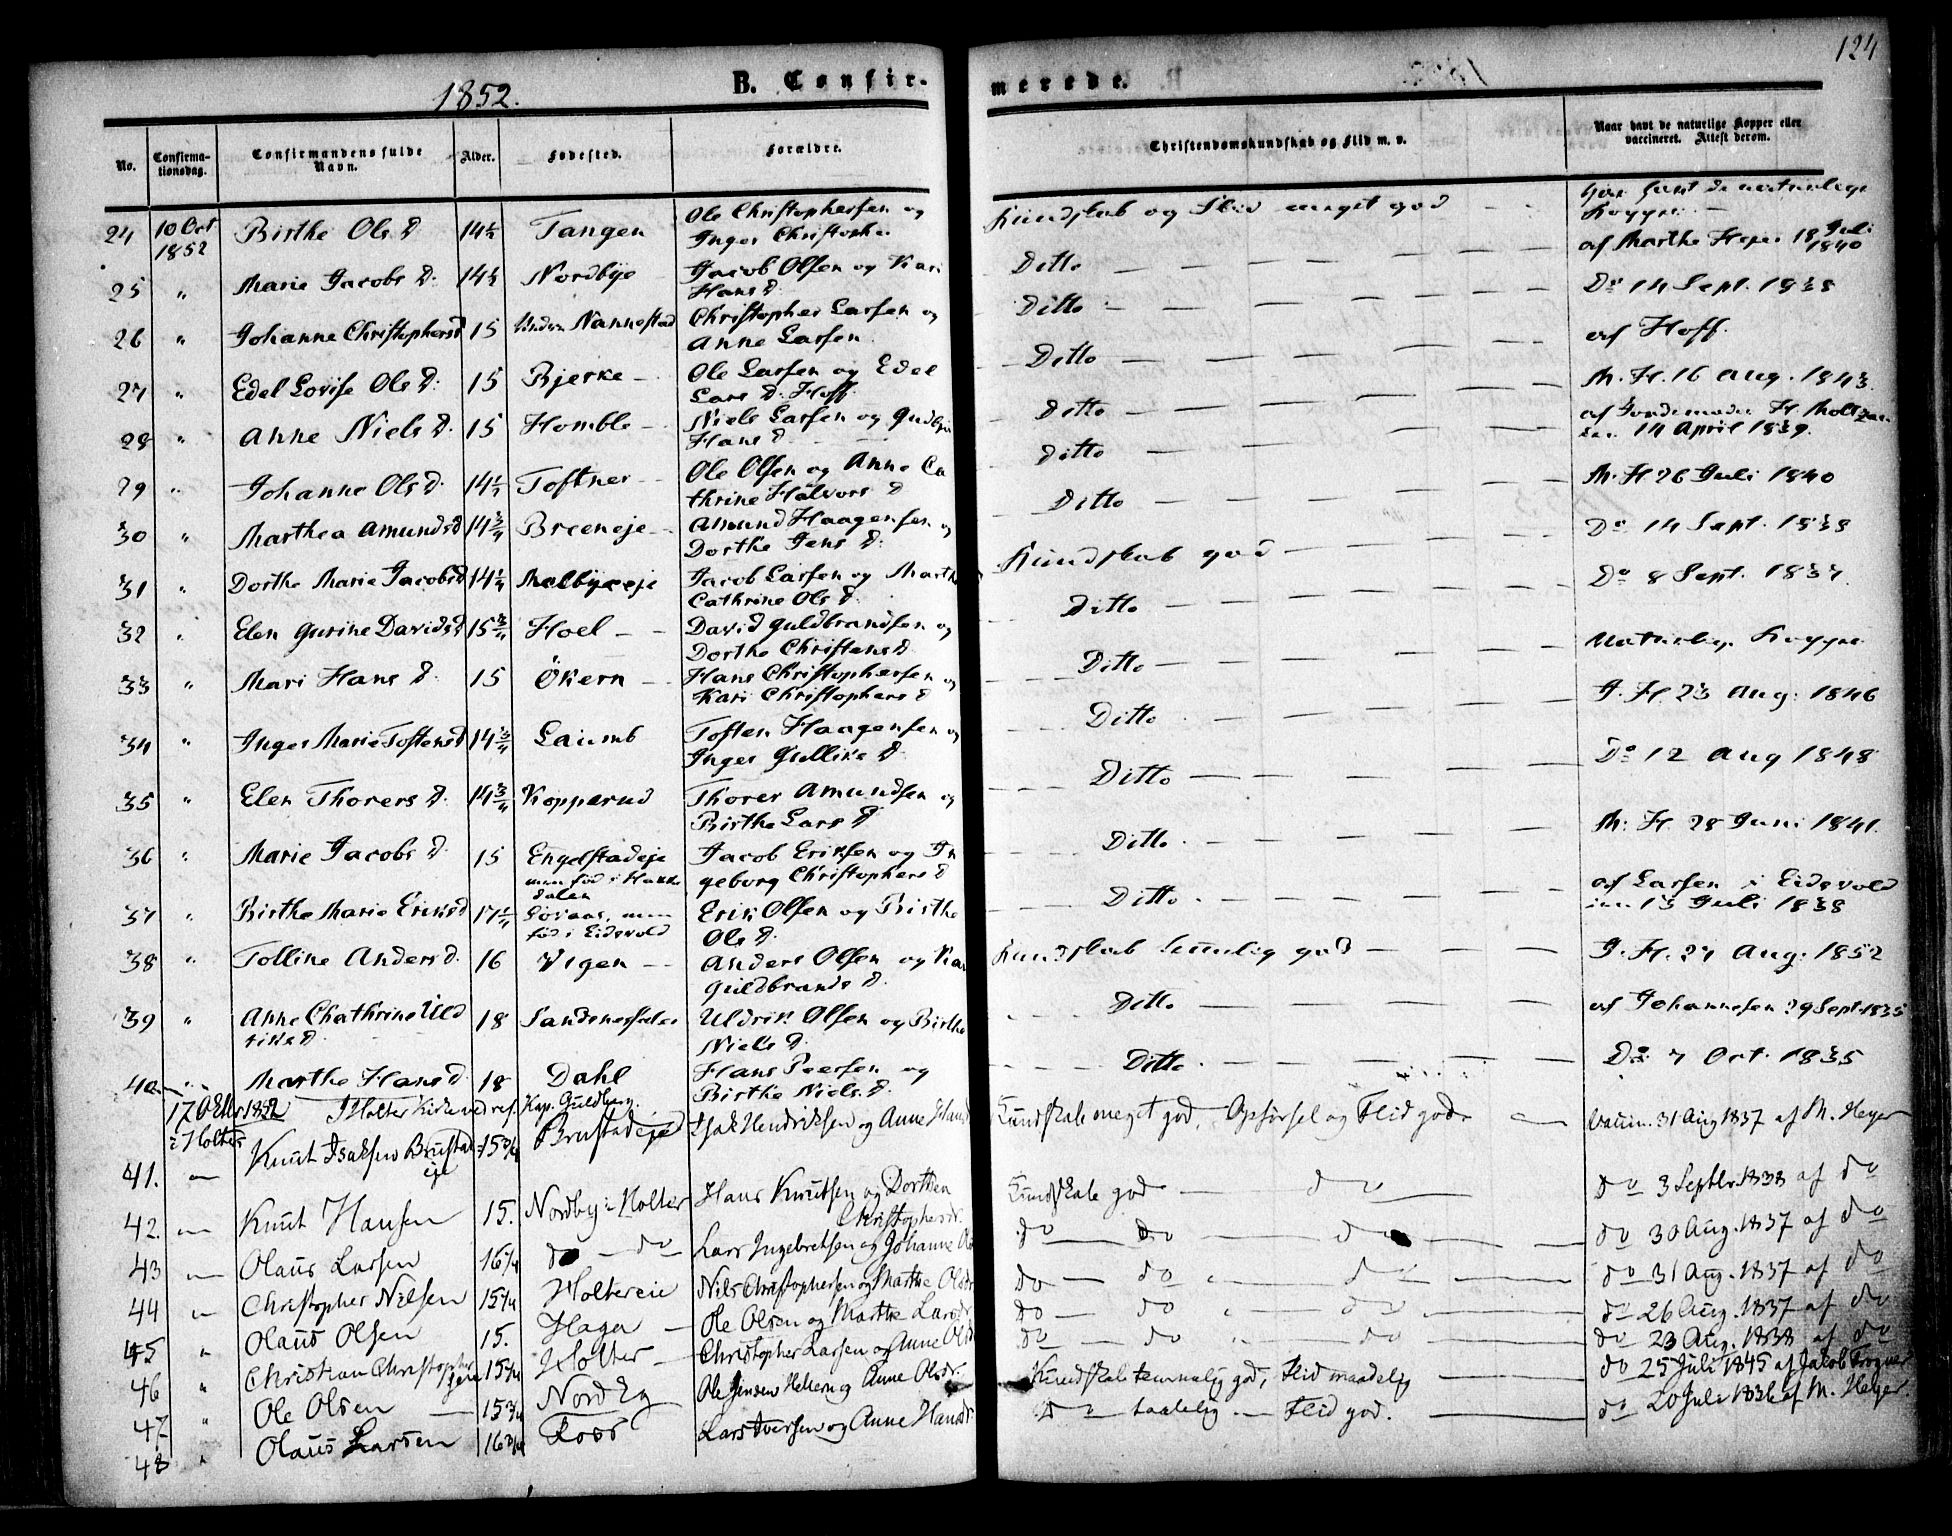 124
1852.
B. Confir-
merede.
No.
Confirma-
tionsdag.
Confirmandens fulde
Navn.
Alder.
Fødested.
Forældre.
Christendomskundskab og Flid m. v.
Naar havt de naturlige Kopper eller
vaccineret. Attest derom.
24 10 Oct 1852 Birthe Ols D. 14½ Tangen Ole Christophersen og Inger Christophe Kundskab og Flid meget god havt de naturlige Kopper
25 " Marie Jacobs D. 14½ Nordbye Jacob Olsen og Kari Hans D. Ditto af Marthe Heyer 18 Juli 1840
26 " Johanne Christophersd 15 Nannestad Christopher Larsen og Anne Larsen Ditto Do 14 Sept. 1838
27 " Edel Lovise Ols D. 15 Bjerke Ole Larsen og Edel Lars D. Hoff Ditto af Hoff
28 " Anne Niels D. 15 Homble Niels Larsen og Gudbjør Hans D Ditto M. H. 16 Aug. 1843
29 " Johanne Ols D. 14½ Toftner Ole Olsen og Anne Cathrine Halvors D Ditto af Jordemoder H. 14 April 1839.
30 " Marthea Amunds D 14¾ Breeneje Amund Haagensen og Dorthe Jens D. Ditto M. H 26 Juli 1840
31 " Dorthe Marie Jacobsd 14¼ Melbyeeje Jacob Larsen og Marth Cathrine Ols D. Kundskab god Do 14 Sept. 1838
32 " Elen Gurine Davidsd 15¾ Hoel David Guldbrandsen og Dorthe Christens D. Ditto Do 8 Sept. 1837
33 " Mari Hans D. 15 Økern Hans Christophersen og Kari Christophers D Ditto Naturlig. Kopper
34 " Inger Marie Tostensd 14¾ Laumb Tosten Haagensen og Inger Gullike D. Ditto J. H. 23 Aug. 1846
35 " Elen Thorers D. 14¾ Kopperud Thorer Amundsen og Birthe Lars D Ditto Do 12 Aug 1848
36 " Marie Jacobs D. 15 Engelstadeje men fød i Hakkedalen Jacob Eriksen og Ingeborg Christophers D Ditto M. H. 28 Juni 1841.
37 " Birthe Marie Eriksd 17¼ men fød i Eidsvold Erik Olsen og Birthe Ols D. Ditto af Larsen i Eidsvold 13 Juli 1838
38 " Tolline Anders D. 16 Vigen Anders Olsen og Kar Guldbrands D. Kundskab temmelig god J. H. 27 Aug. 1852
39 " Anne Chathrine Uldriks D. 18 Uldrik Olsen og Birthe Niels D. Ditto af Johannesen 29 Sept. 1835
40 " Marthe Hans D. 18 Dahl Hans Peersen og Birthe Niels D. Ditto Do 7 Oct. 1835
17 Octbr 1852 i Holter Kirke ved ref. Kap. Guldberg.
i Holter
41. Knut Isaksen Brustadeje 15¾ Brustadeje Isak Hendriksen og Anne Hansd Kundskab meget god, Opførsel og Flid god Vaccin. 31 Aug 1837 af M. Heyer
42. Knut Hansen 15. Nordby i Holter Hans Knutsen og Dorthea Christophersdr. Kundskab god do do 3 Septbr. 1838 af do
43 Olaus Larsen 16¼ do do Lars Ingebretsen og Johanne do do do do 30 Aug. 1837 af do
44 Christopher Nilsen 15¼ Holtereie Nils Christophersen og Marthe Olsdr do do do do 31 Aug. 1837 af do
45 " Olaus Olsen 15. Haga Ole Olsen og Marthe Larsdr do do do do 26 Aug. 1837 af do
46 " Christian Christophersen 15¼ Holter Christopher Larsen og Anne Olsd do do do do 23 Aug. 1838 af do
47 " Ole Olsen 15¾ Nord Eg Ole Jensen og Anne Olsdr. Kundskab temmelig god, Flid maadelig do 25 Juli 1845 af Jakob Trogner
48 " Olaus Larsen 16¾ Lars Iversen og Anne Hansdr do taalelig Flid god. do 20 Juli 1836 af M. Heyer.